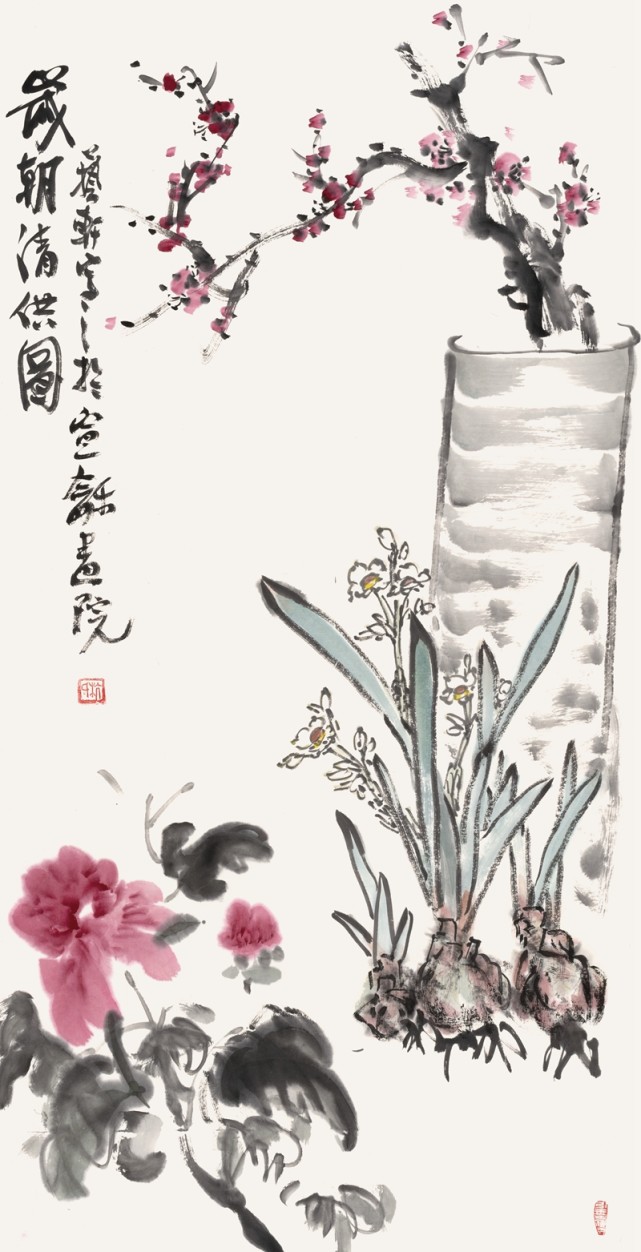 歲朝清供圖
藝軒寫之於宣龢畫院